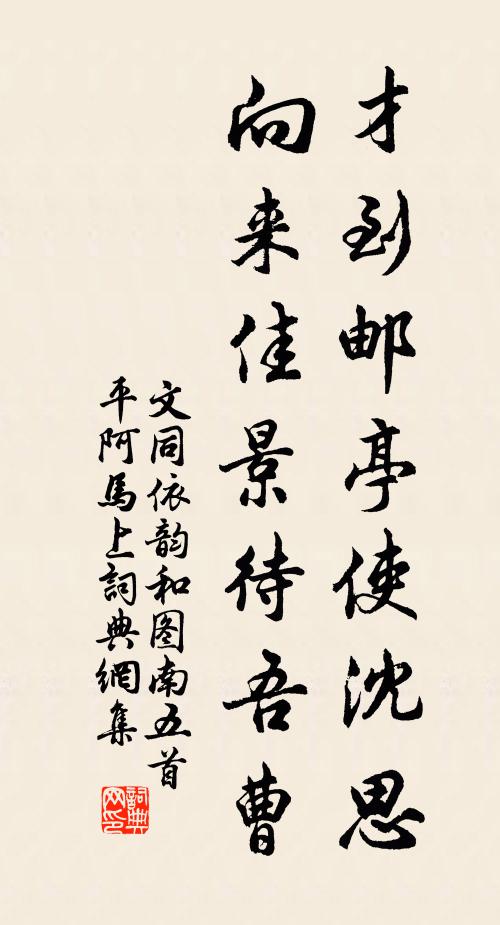 才到邮亭使沈思
向来佳景待吾曹
文同依韵和图南五首
平阿馬上詞典網集
詞典
网印